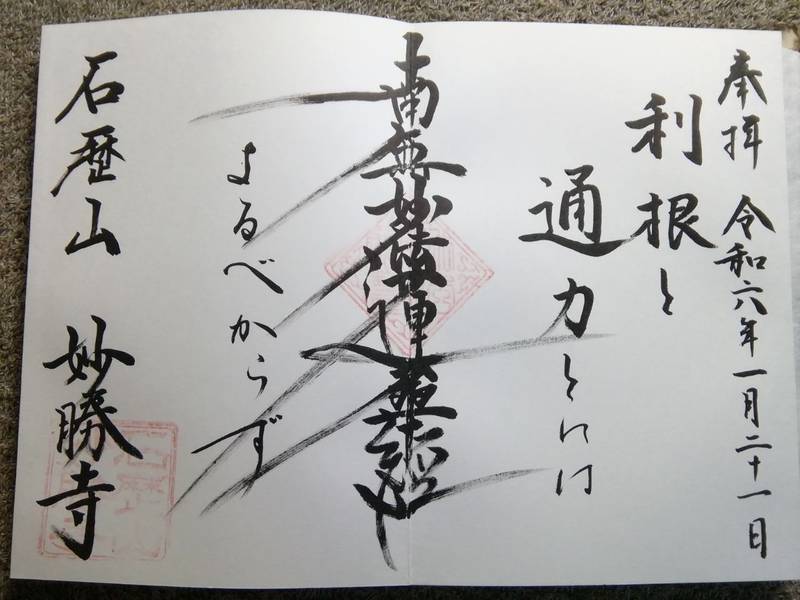 奉拝 令和六年一月二十一日
利根と
通力とには
南無妙法蓮華経
よるべからず
石歴山 妙勝寺